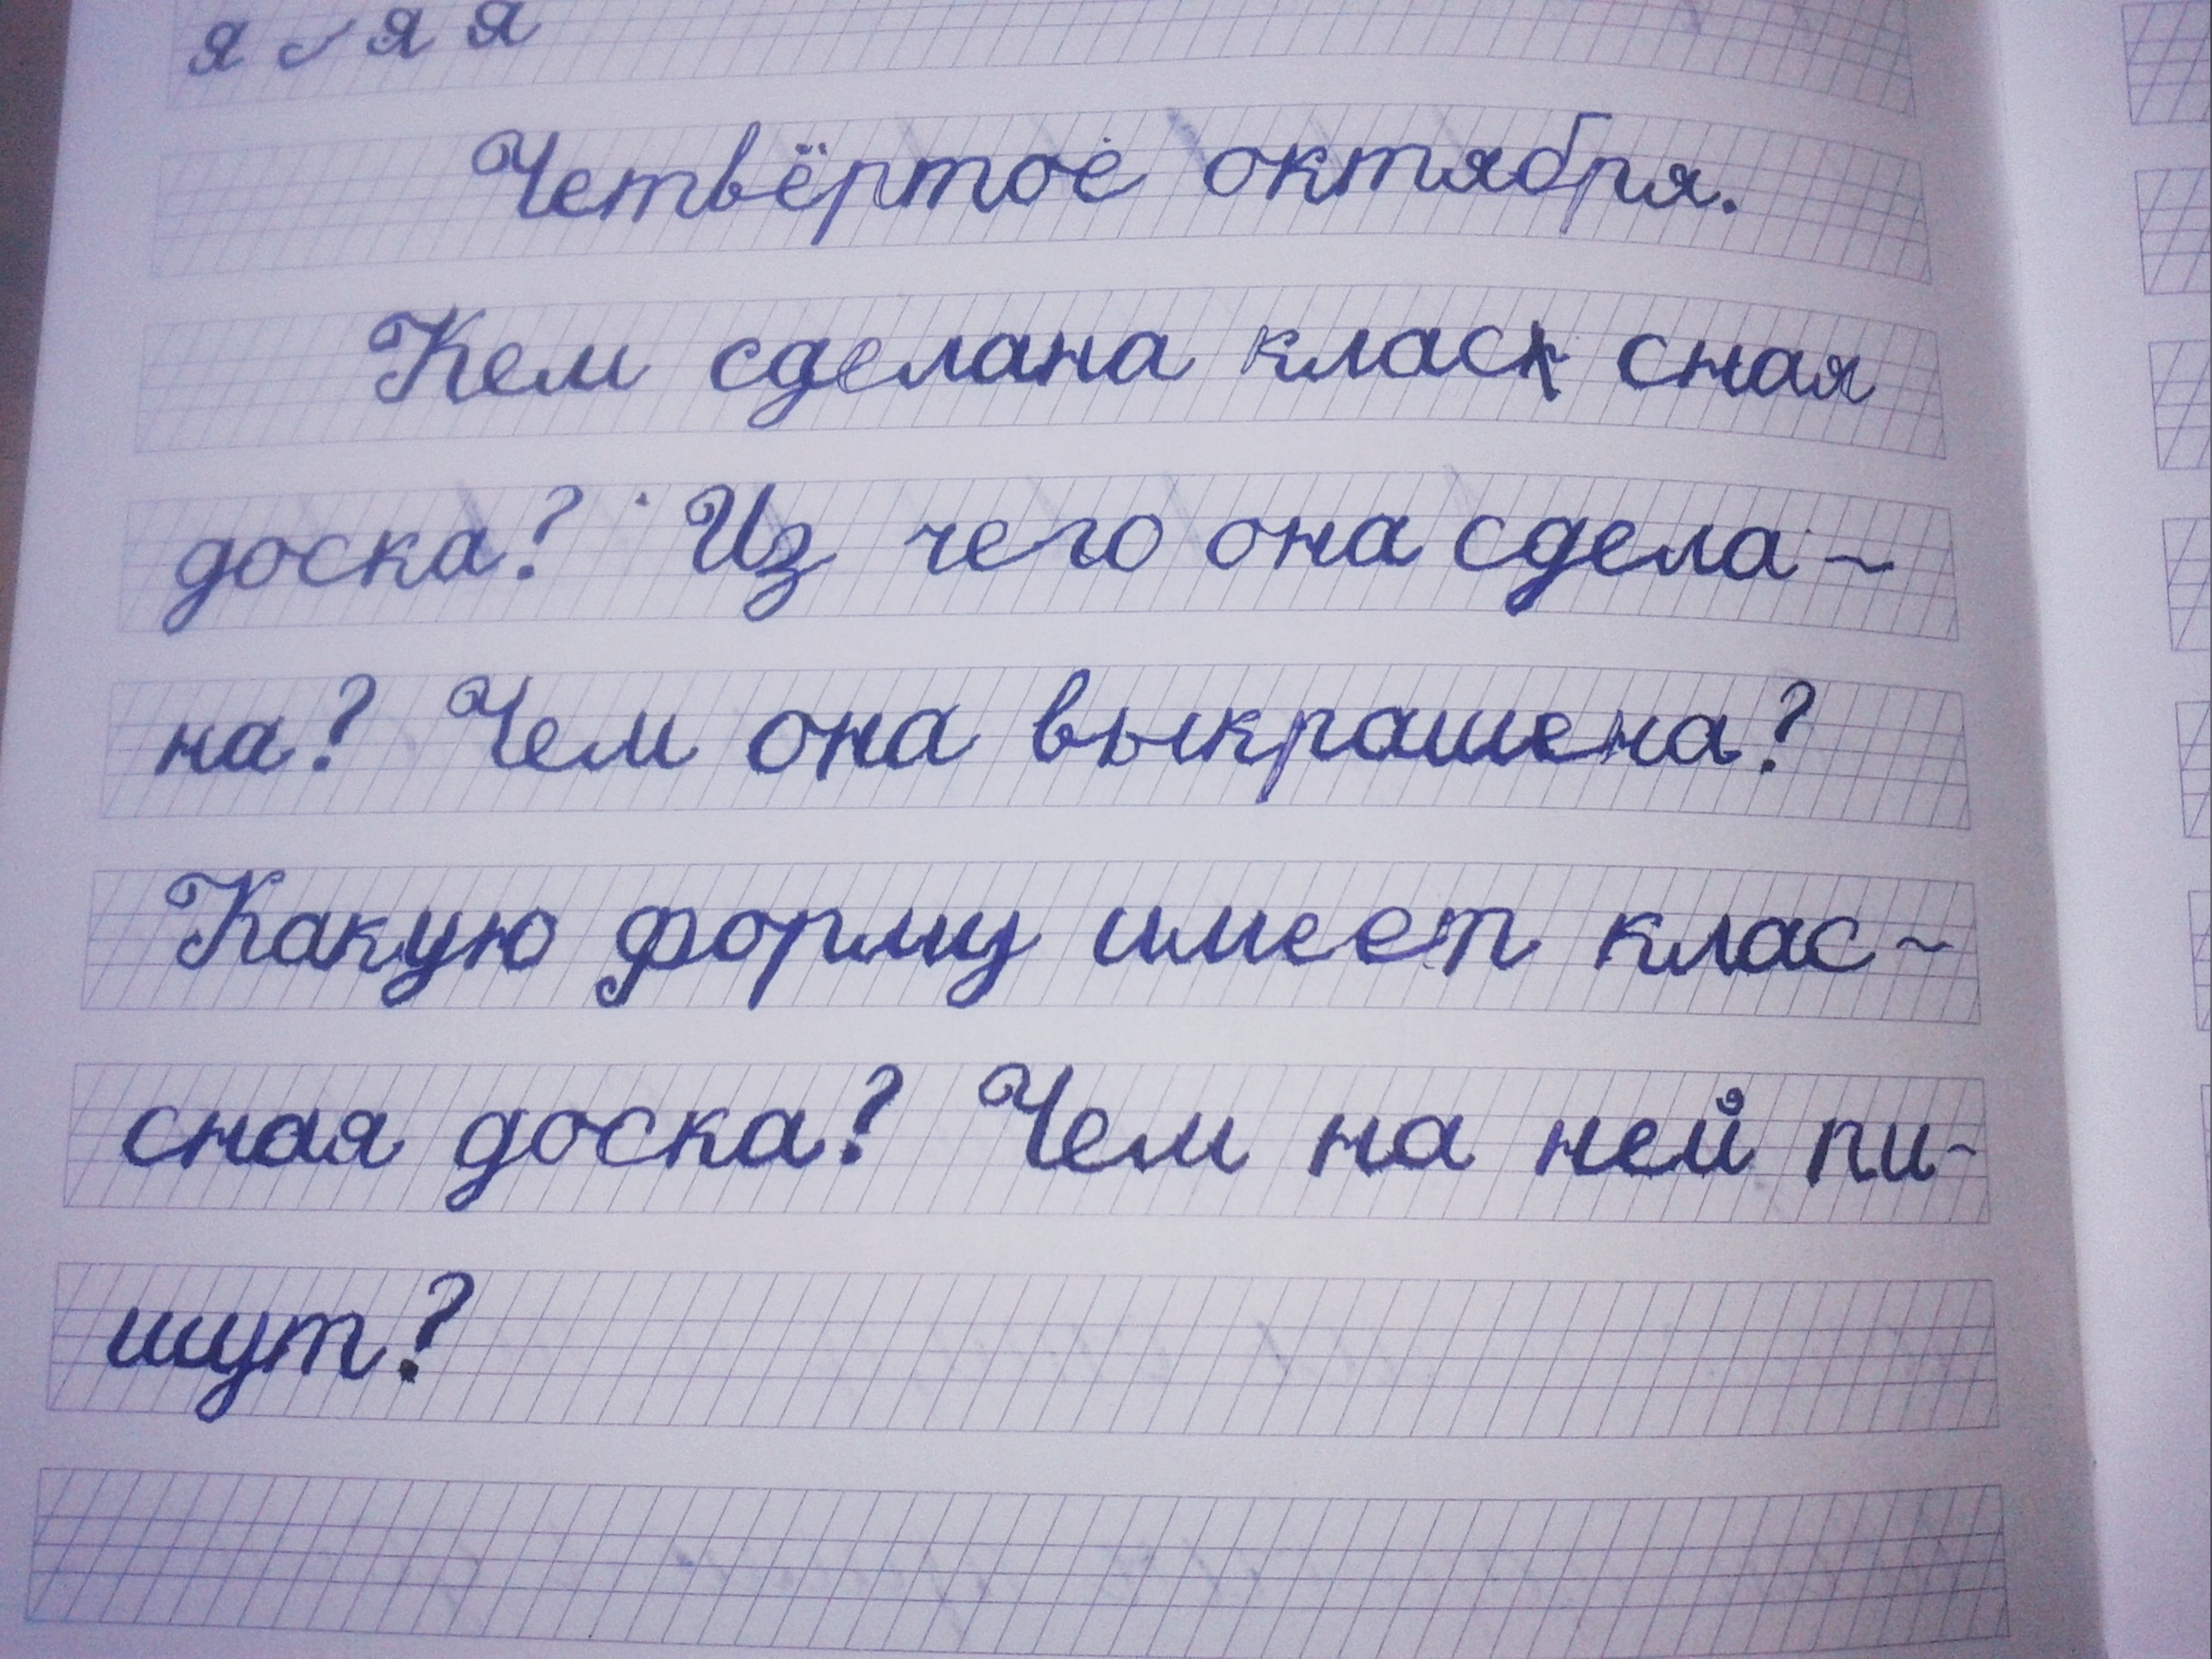 я я я
Четвёртое октября.
Кем сделана клас сная
доска? Из чего она сдела-
на? Чем она выкрашена?
Какую форму имеет клас-
сная доска? Чем на ней пи-
шут?